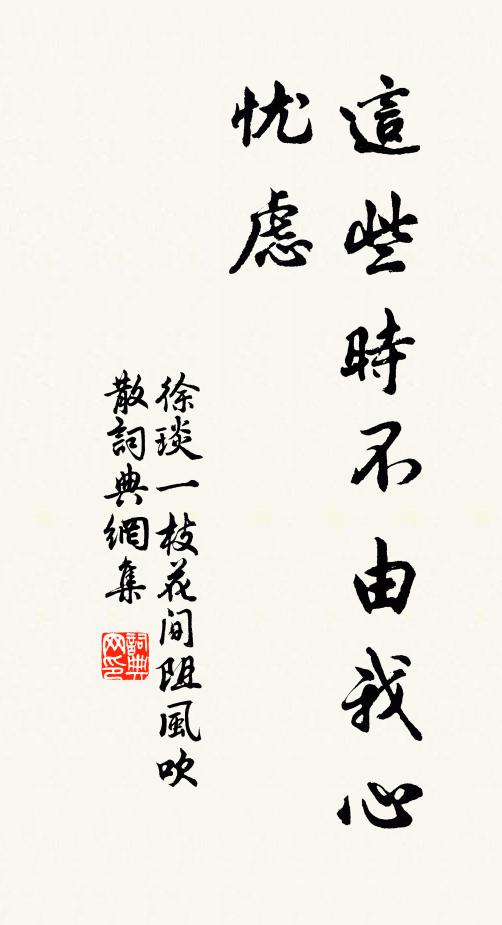 這些時不由我心
忧慮
徐琰一枝花间阻風吹
散詞典網集
詞典
网印